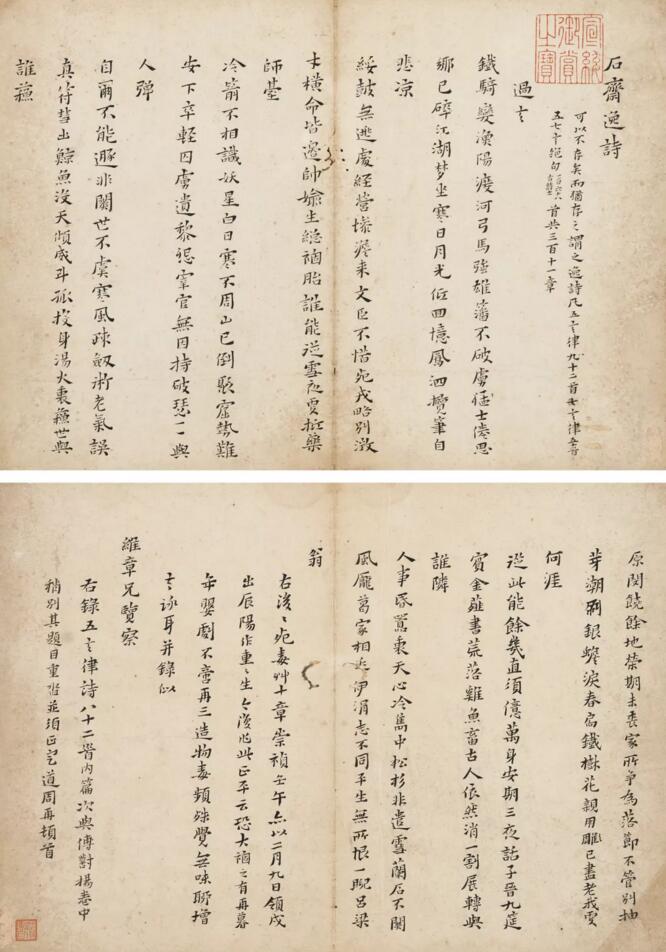 石齋逸詩
可以不存矣而猶存之謂之逸詩凡五言律九十二首七言律
五七言絕句首共三百十一章
過
鐵騎變漁陽渡河弓馬強雄藩不破虜猛士倦思
鄉已碎江湖夢坐寒日月光低回憶鳳泗攬筆自
悲凉
綏鼓無遮處經營慘澹來文臣不惜死戎略別激
才橫命皆邊帥婾生總禍胎誰能逆雪夜更
師臺
冷箭不相識妖星白日寒不周山已倒窟勢難
安下卒輕囚虜遺黎怨宰官無因持破瑟一一與
人彈
自爾不能遯非關世不虞寒風疎劒術老氣誤
真符彗出鯨魚沒天傾成斗孤投身湯火裏世與
誰蘓
原閔饒餘地榮期未喪家所爭為落節不管別抽
芽潮銀蟾淚春鐵樹花親用雕已盡老戎更
何涯
從此能餘幾直須億萬身安期三夜話子晉九筵
賓金薤書荒落雞魚畜古人依然消一割展轉與
誰隣
人事昏囂裏天心冷雋中松杉非遣雪蘭石不關
風龐葛家相近伊涓志不同平生無所恨一睨呂梁
翁
右後後死毒艸十章崇禎壬午亦以二月九日領戍
出辰陽作重重生今復作此正平云恐大禍之有再暮
年嬰劇不啻再三造物毒頻殊覺無味聊增
言詠耳并錄似
維章兄覽察
右錄五言律詩八十二首內篇次與傅對楊卷中
稍別其題目重並須正定道周再頓首